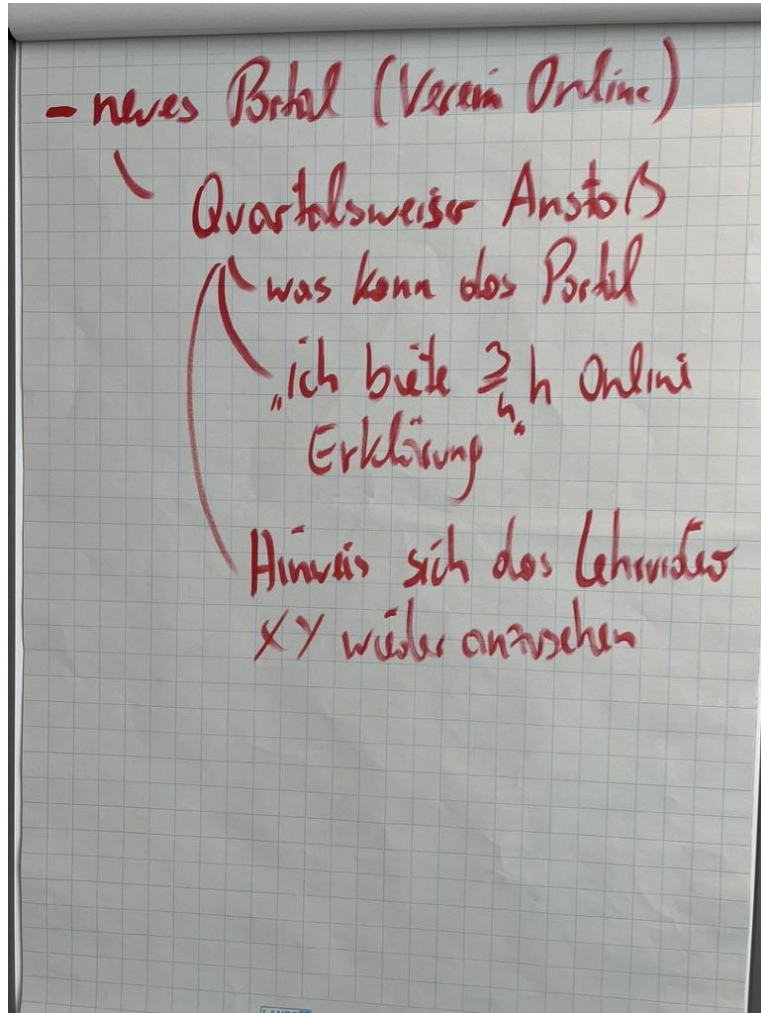 - neues Portal (Verein Online)
Quartalsweiser Anstoß
was kann das Portal
„ich biete 3/4 h Online
Erklärung"
Hinweis sich das Lehrvideo
XY wieder anzusehen